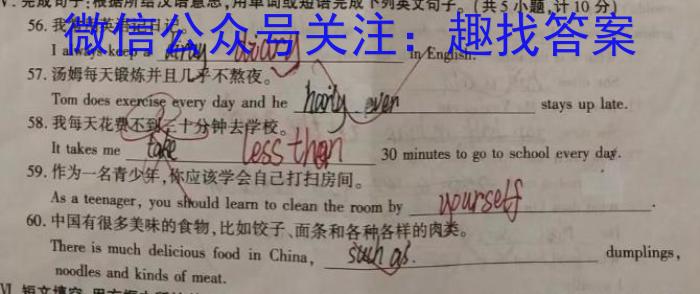 V. 完成句子:根据所给汉语意思,用单词或短语完成下列英文句子。(共5小题,计10分)
微信公众号关注:趣找答案
56. 我
I always keep a dirty diary in English.
57. 汤姆每天锻炼并且几乎不熬夜。
Tom does exercise every day and he harly ever stays up late.
58. 我每天花费不到三十分钟去学校。
It takes me take less than 30 minutes to go to school every day.
59. 作为一名青少年,你应该学会自己打扫房间。
As a teenager, you should learn to clean the room by yourself.
60. 中国有很多美味的食物,比如饺子、面条和各种各样的肉类。
There is much delicious food in China, such as. dumplings,
noodles and kinds of meat.
VI. 短文填空